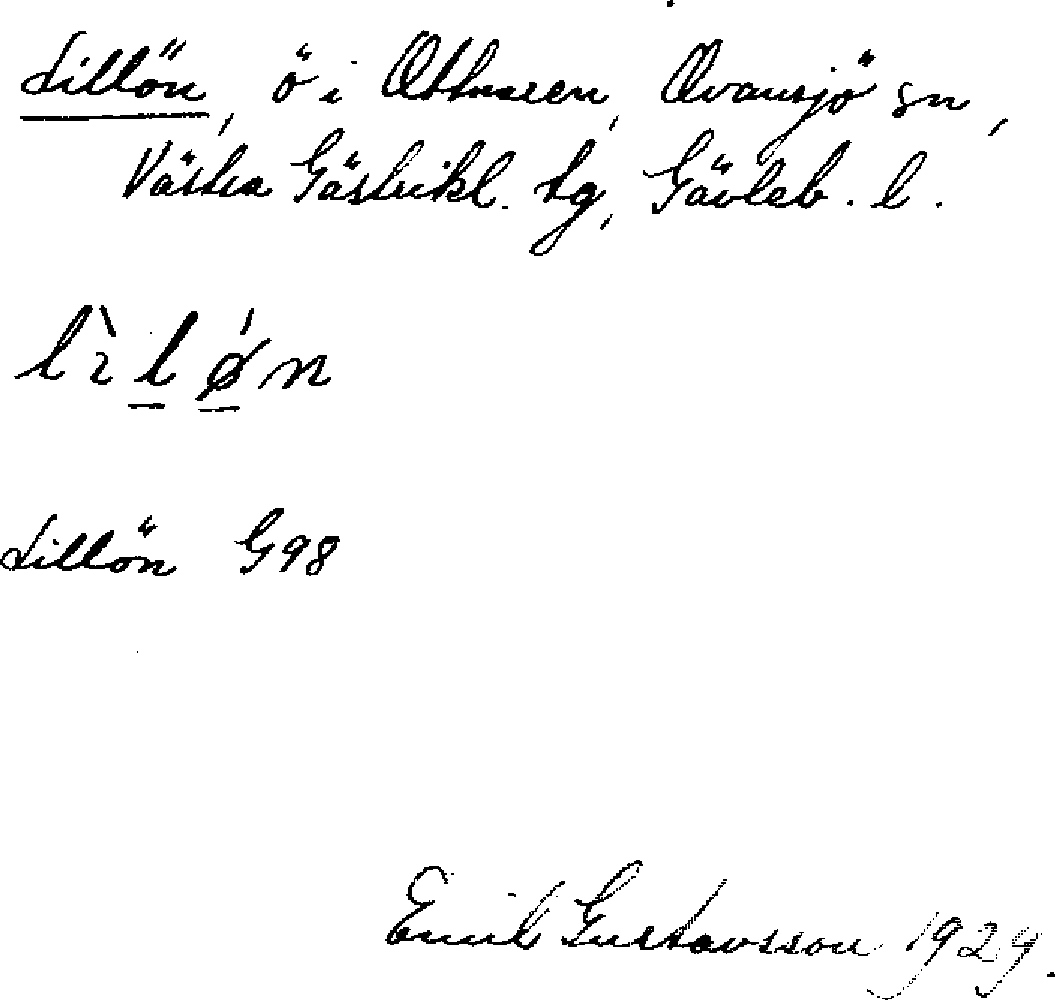 Lillön, ö i Ottnaren, Ovansjö sn,
Västra Gästrikl. tg, Gävleb. l.
lìlǿn
Lillön G98
Emil Gustavsson 1929.